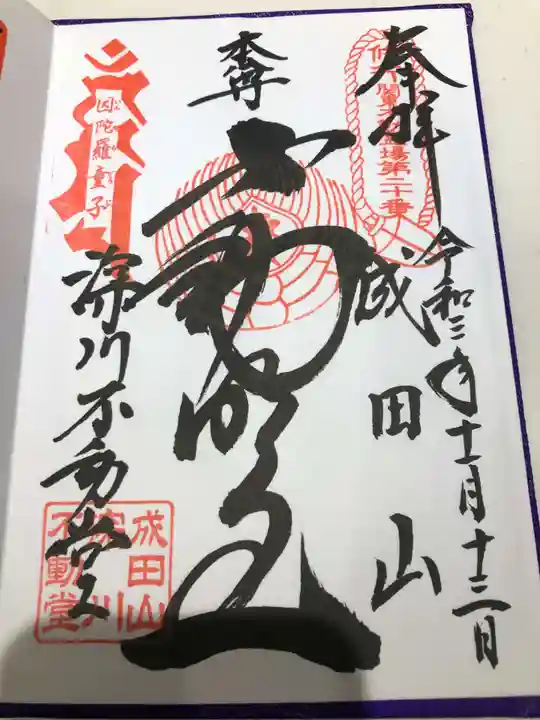 奉拝
令和二年十二月十三日
第二十番
成田山
本尊
不動明王
因陀羅童子
深川不動堂
成田山
深川
不動堂